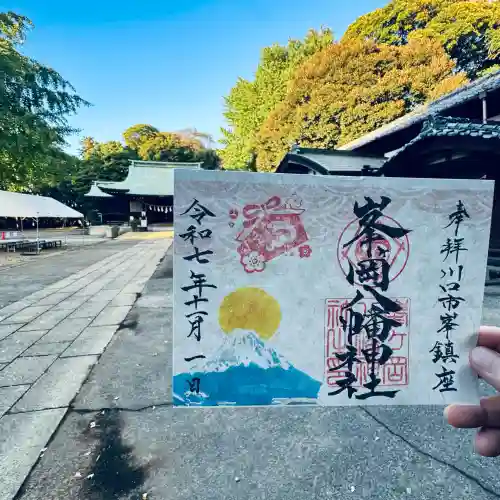 奉拝 川口市峯 鎮座
峯岡八幡神社
令和七年十一月一日